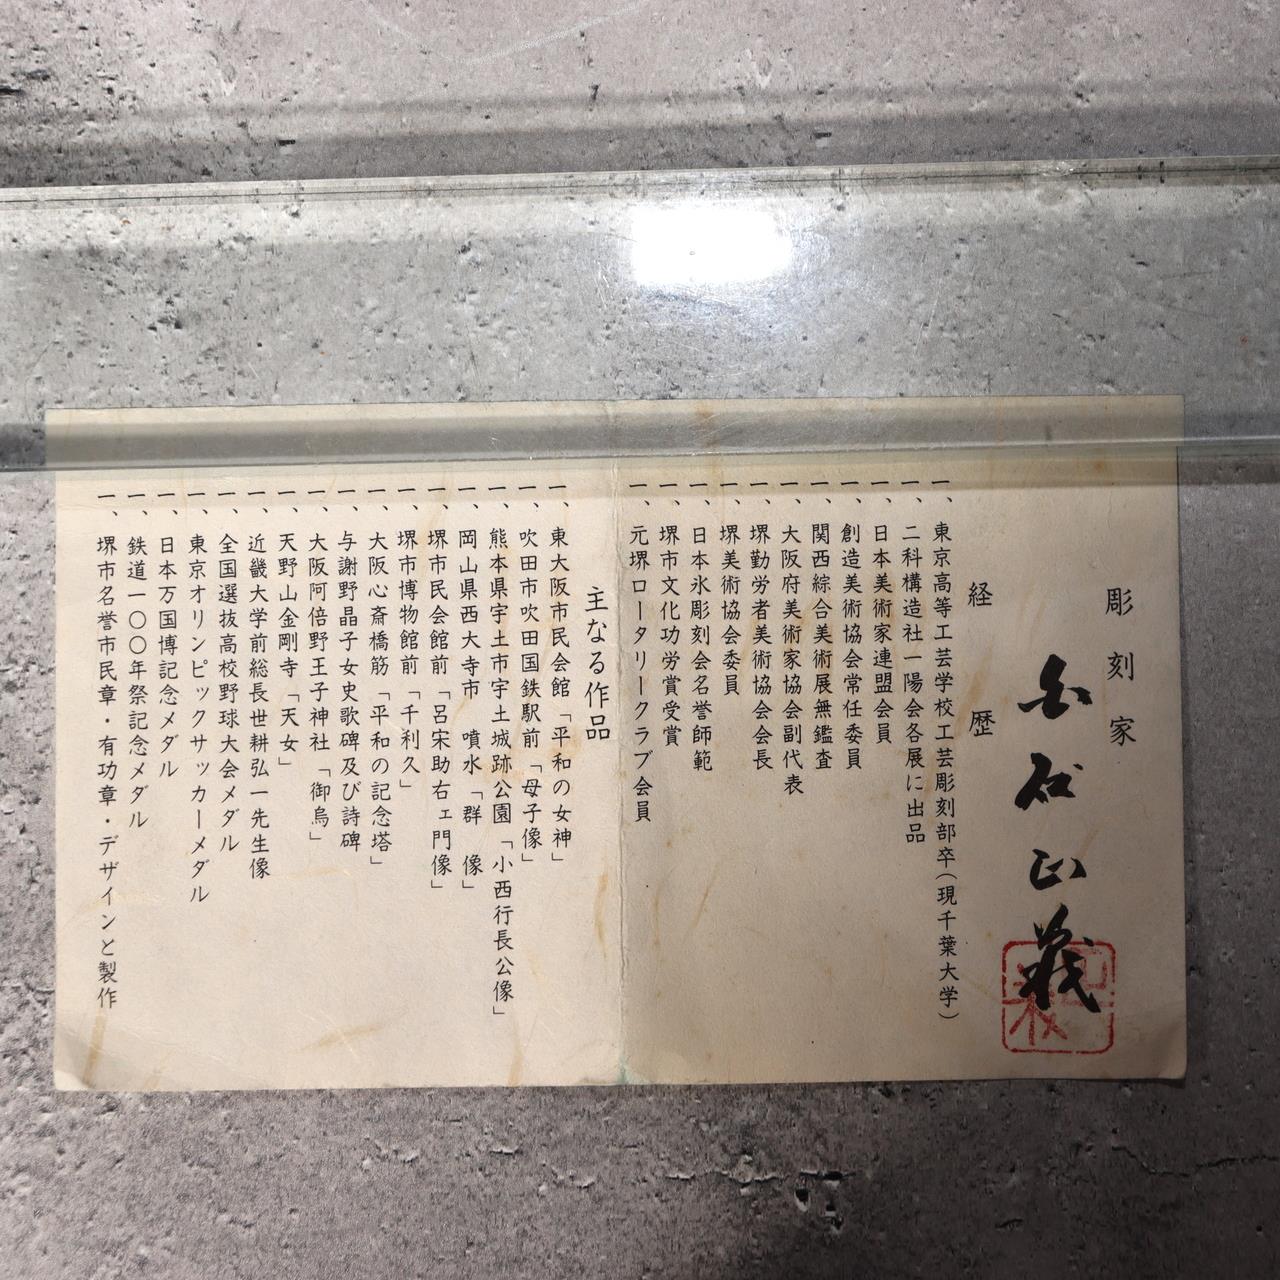 彫刻家
白石正義
経歴
一、東京高等工芸学校工芸彫刻部卒（現千葉大学）
一、二科構造社一陽会各展に出品
一、日本美術家連盟会員
一、創造美術協会常任委員
一、関西綜合美術展無鑑査
一、大阪府美術家協会副代表
一、堺勤労者美術協会会長
一、堺美術協会委員
一、日本氷彫刻会名誉師範
一、堺市文化功労賞受賞
一、元堺ロータリークラブ会員
主なる作品
一、東大阪市民会館「平和の女神」
一、吹田市吹田国鉄駅前「母子像」
一、熊本県宇土市宇土城跡公園「小西行長公像」
一、岡山県西大寺市　噴水「群　像」
一、堺市民会館前「呂宋助右ェ門像」
一、堺市博物館前「千利久」
一、大阪心斎橋筋「平和の記念塔」
一、与謝野晶子女史歌碑及び詩碑
一、大阪阿倍野王子神社「御烏」
一、天野山金剛寺「天女」
一、近畿大学前総長世耕弘一先生像
一、全国選抜高校野球大会メダル
一、東京オリンピックサッカーメダル
一、日本万国博記念メダル
一、鉄道一〇〇年祭記念メダル
一、堺市名誉市民章・有功章・デザインと製作